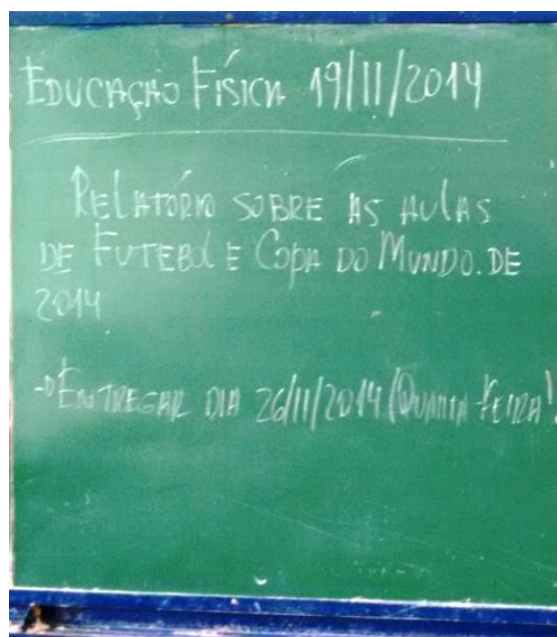 EDUCAÇÃO FÍSICA 19/11/2014
RELATÓRIO SOBRE AS AULAS
DE FUTEBOL E COPA DO MUNDO. DE
2014
→ENTREGAR DIA 26/11/2014 (QUARTA-FEIRA!